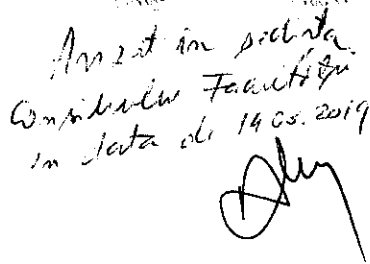 Avizat în ședința
Consiliului Facultății
în data de 14.05.2019